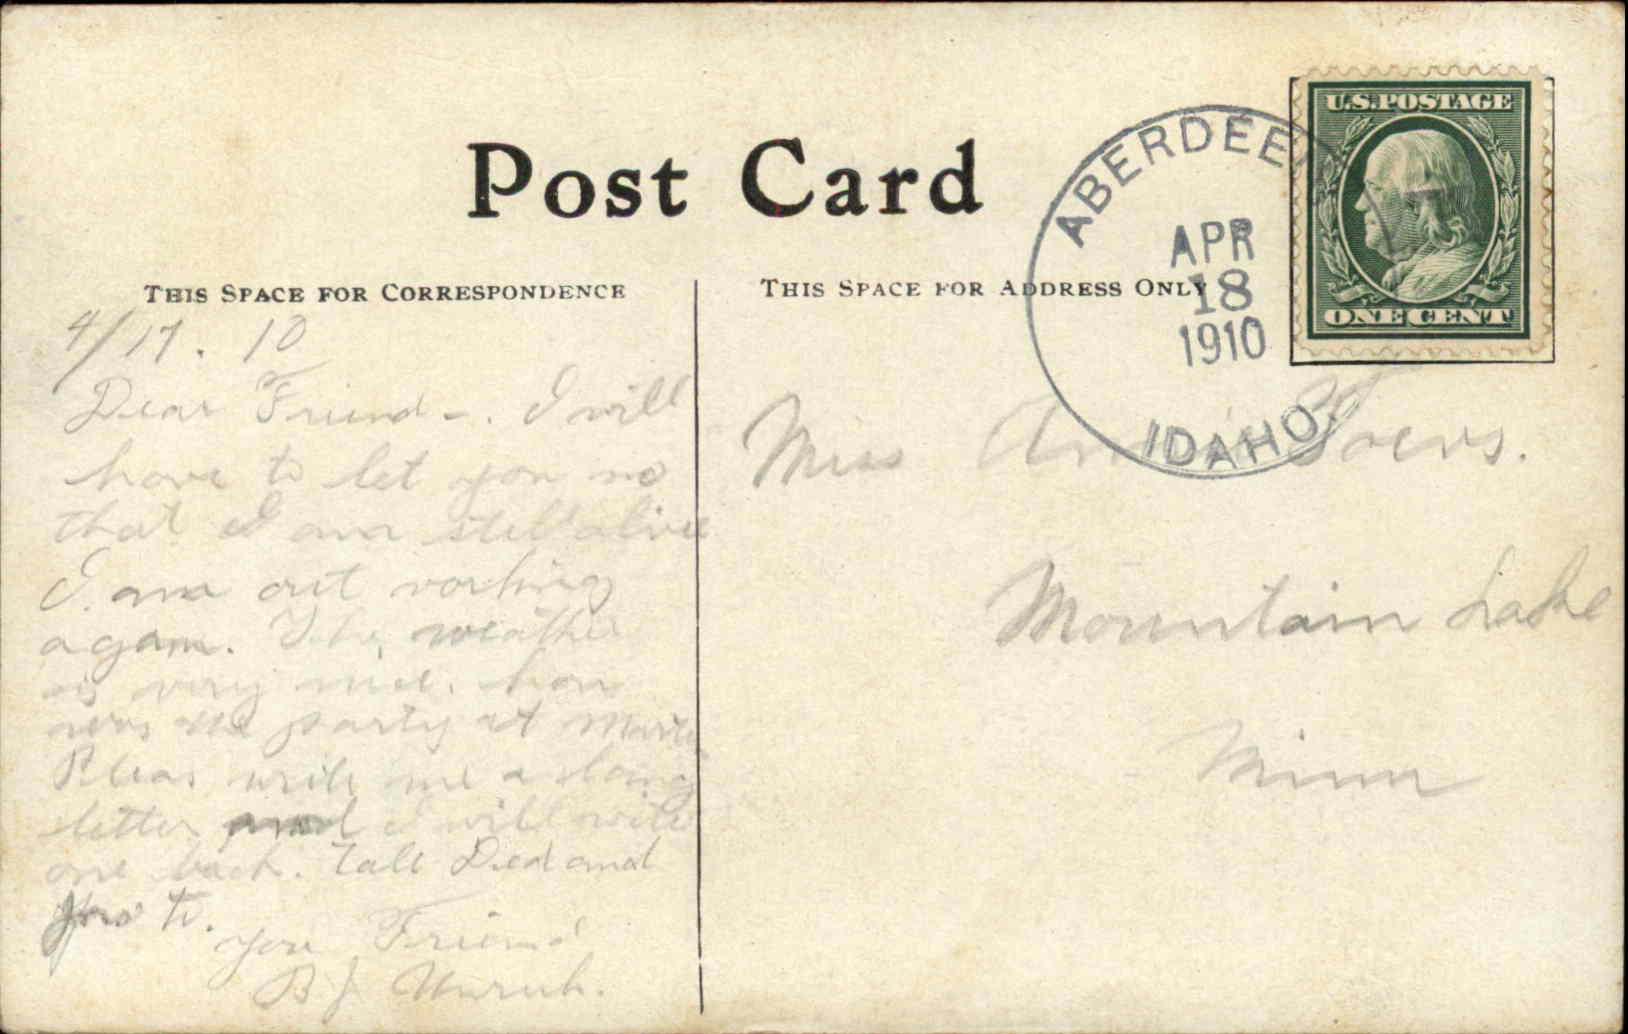 Post Card
THIS SPACE FOR CORRESPONDENCE
THIS SPACE FOR ADDRESS ONLY
U.S. POSTAGE
ONE CENT
ABERDEEN
APR
18
1910
IDAHO.
4/17. 10
Dear Friend-. I will
have to let you no
that I am still alive
I am out working
again. The weather
is very nice. how
was the party at
Pleas write me a long
letter and I will write
one back. Tall Died and
to.
your Friend
B J Unruh.
Miss
Mountain Lake
Minn